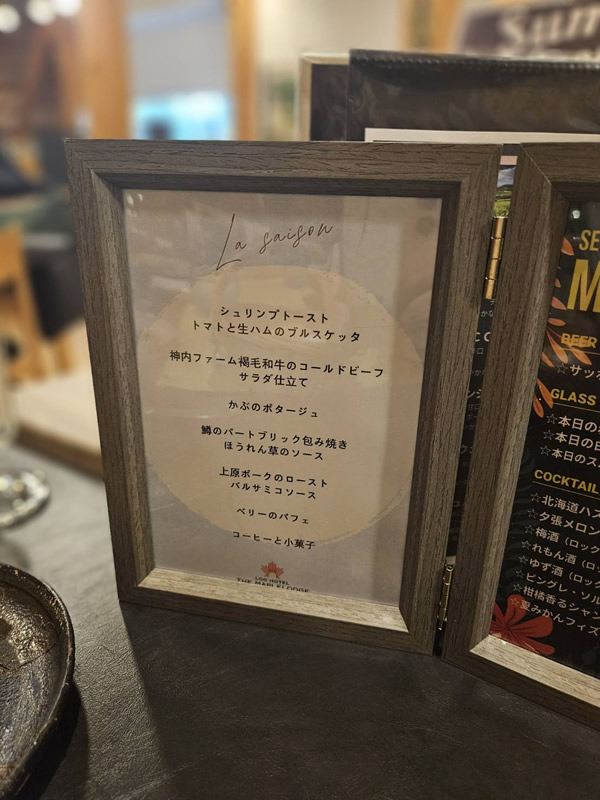 La saison
シュリンプトースト
トマトと生ハムのブルスケッタ
神内ファーム褐毛和牛のコールドビーフ
サラダ仕立て
かぶのポタージュ
鱒のパートブリック包み焼き
ほうれん草のソース
上原ポークのロースト
バルサミコソース
ベリーのパフェ
コーヒーと小菓子
LOG HOTEL
THE MAPLELODGE
SE
M
BEER
☆サッポ
GLASS
☆本日の
☆本日の白
☆本日のス
COCKTAIL
☆北海道ハス
☆夕張メロン
☆梅酒（ロック
☆れもん酒（ロッ
☆ゆず酒（ロック
☆ピングレ・ソル
☆柑橘香るシャン
☆夏みかんフィズ